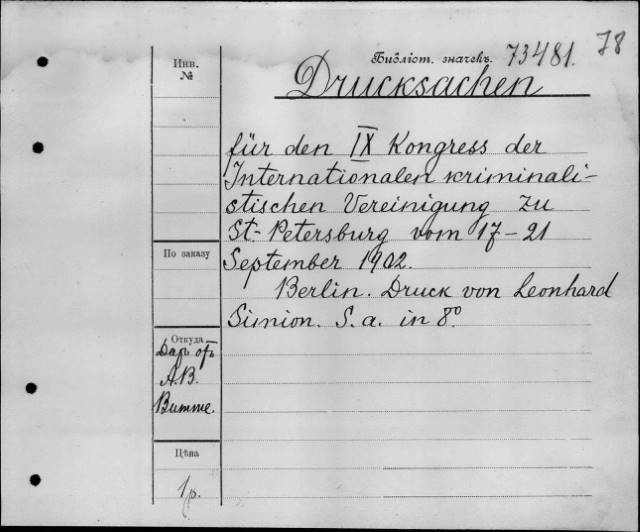 78
Библіот. значекъ. 73481.
Drucksachen
für den IX Kongress der
Internationalen kriminali-
stischen Vereinigung zu
St-Petersburg vom 17-21
September 1902.
Berlin. Druck von Leonhard
Simion. S. a. in 8°
Инв.
№
По заказу
Откуда
Даръ отъ
А.В.
Витте.
Цѣна
1р.